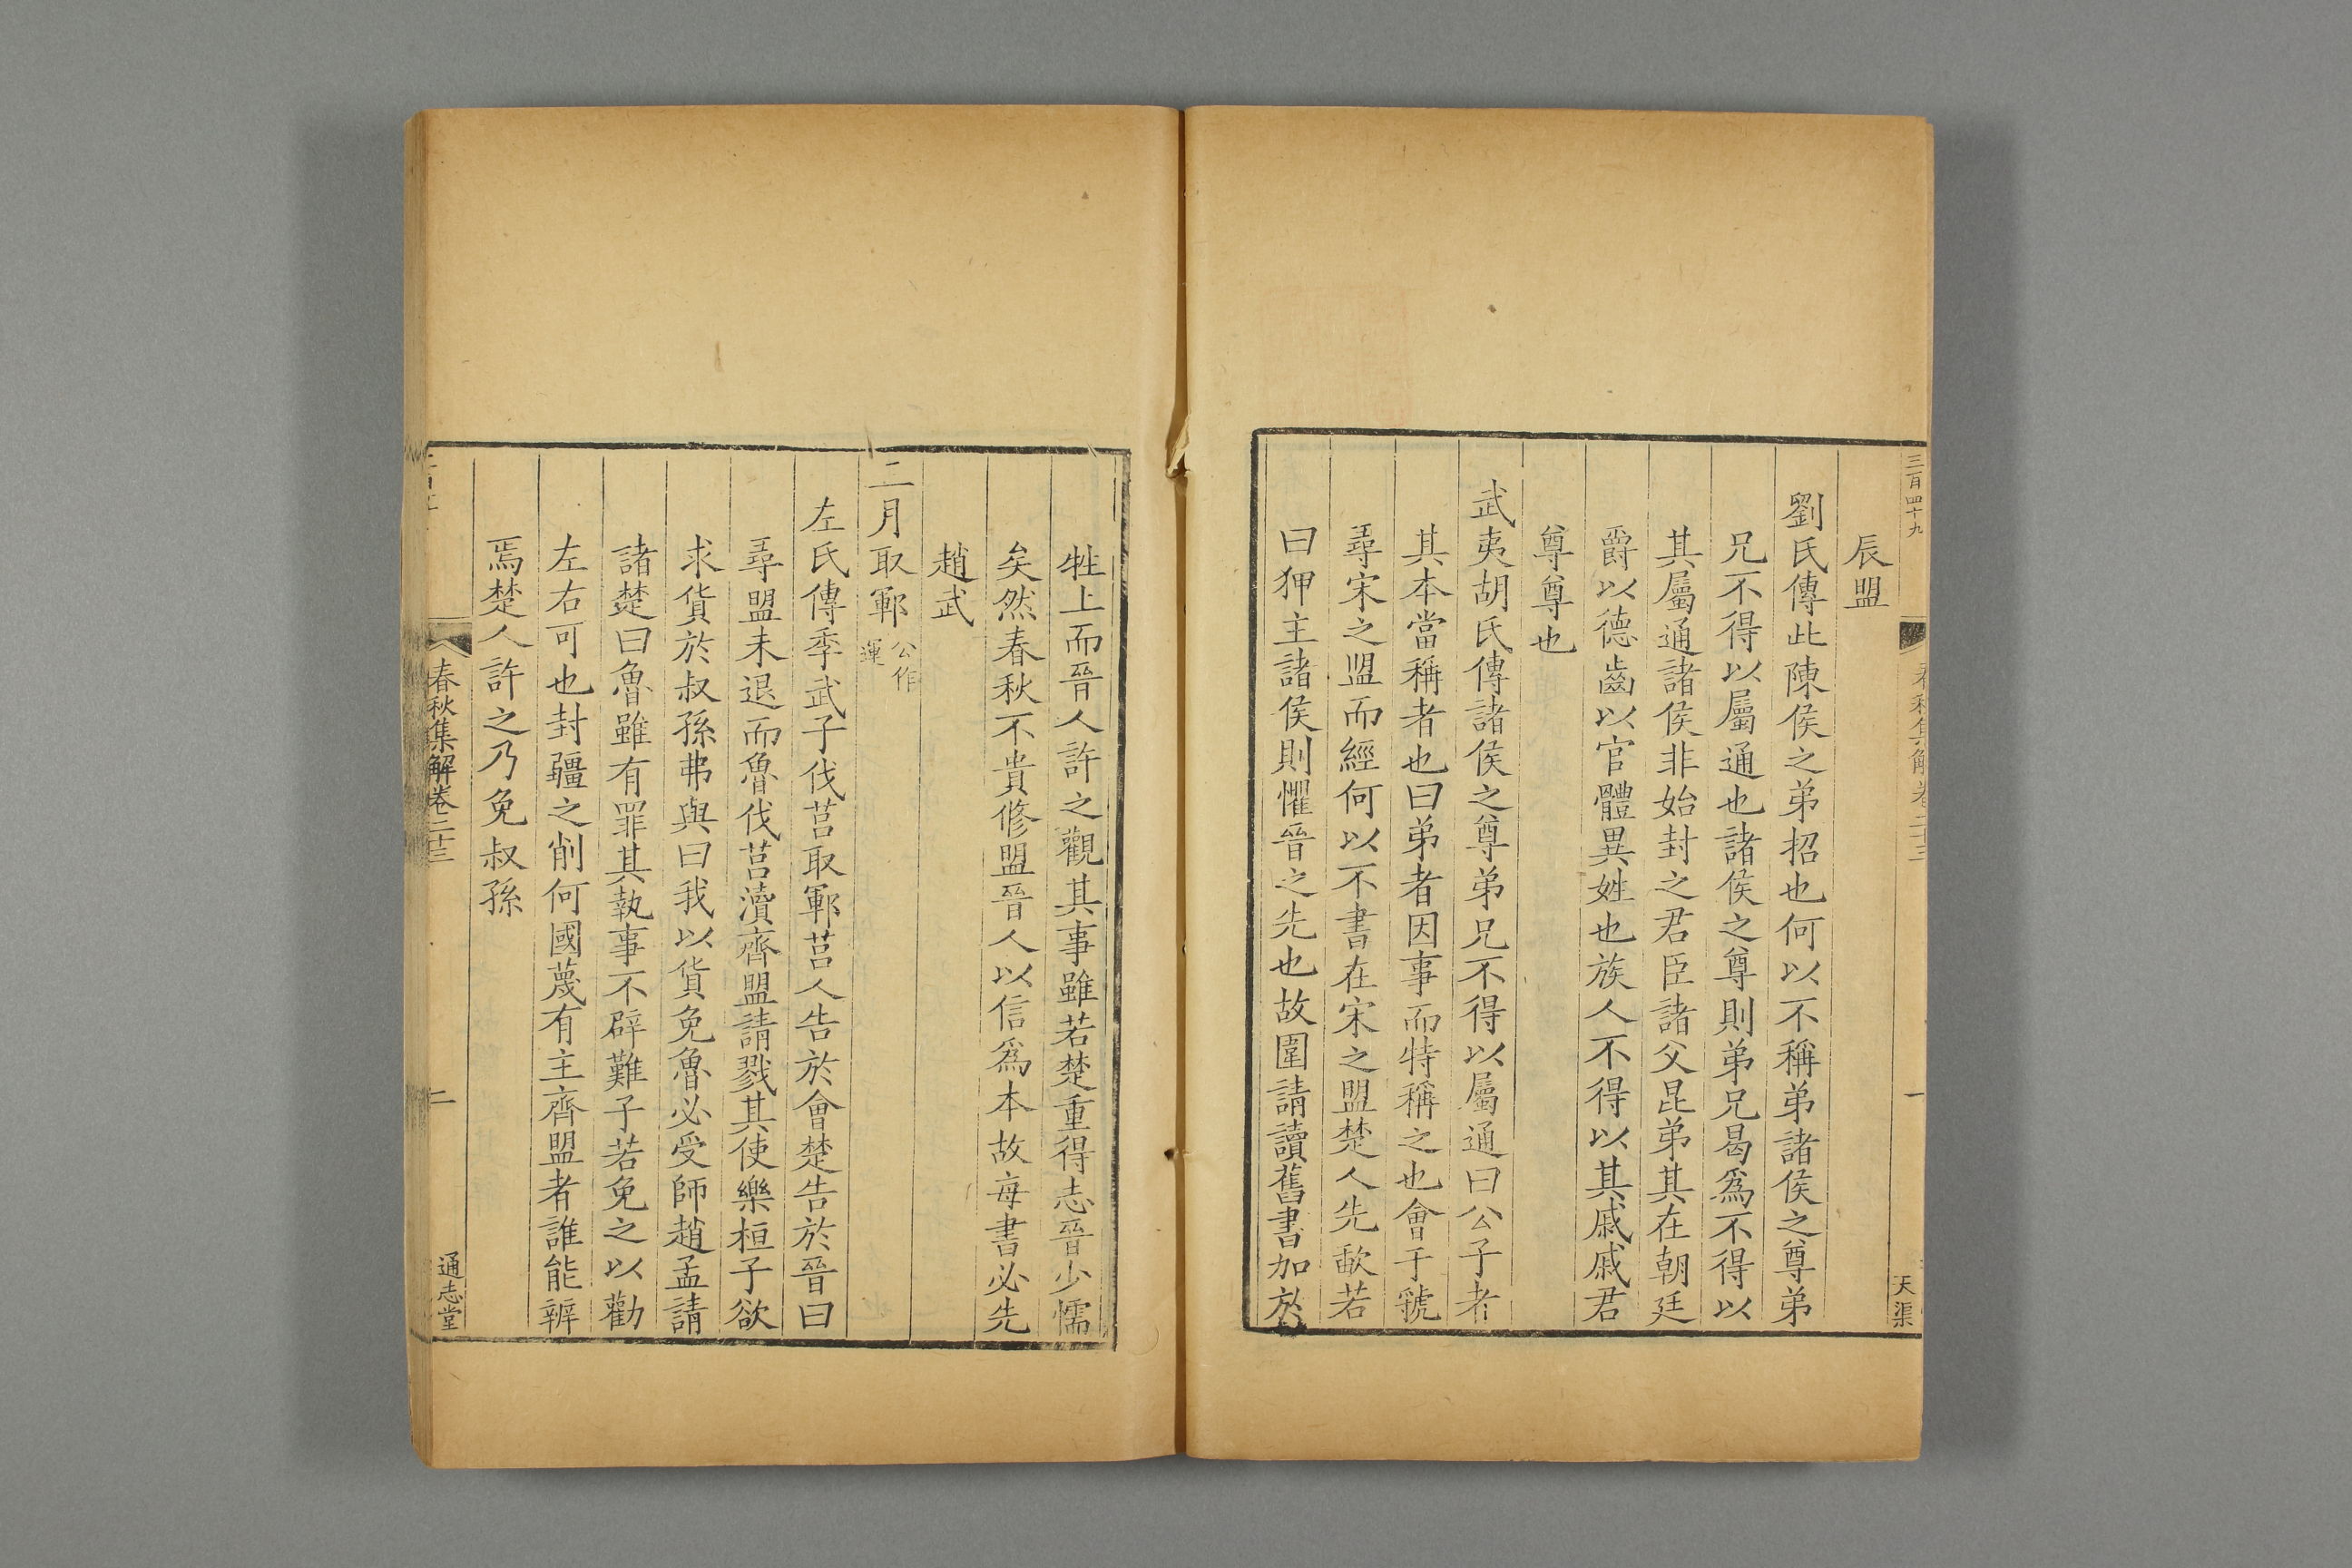 三百四十九
春秋集解卷二十三
一
天渠
辰盟
劉氏傳此陳侯之弟招也何以不稱弟諸侯之尊弟
兄不得以屬通也諸侯之尊則弟兄曷爲不得以
其屬通諸侯非始封之君臣諸父昆弟其在朝廷
爵以德齒以官體異姓也族人不得以其戚戚君
尊尊也
武夷胡氏傳諸侯之尊弟兄不得以屬通曰公子者
其本當稱者也曰弟者因事而特稱之也會于虢
尋宋之盟而經何以不書在宋之盟楚人先歃若
曰狎主諸侯則懼晉之先也故圍請讀舊書加於
牲上而晉人許之觀其事雖若楚重得志晉少懦
矣然春秋不貴修盟晉人以信爲本故每書必先
趙武
二月取鄆公作
運
左氏傳季武子伐莒取鄆莒人告於會楚告於晉曰
尋盟未退而魯伐莒瀆齊盟請戮其使樂桓子欲
求貨於叔孫弗與曰我以貨免魯必受師趙孟請
諸楚曰魯雖有罪其執事不辟難子若免之以勸
左右可也封疆之削何國蔑有主齊盟者誰能辨
焉楚人許之乃免叔孫
春秋集解卷二十三
二
通志堂